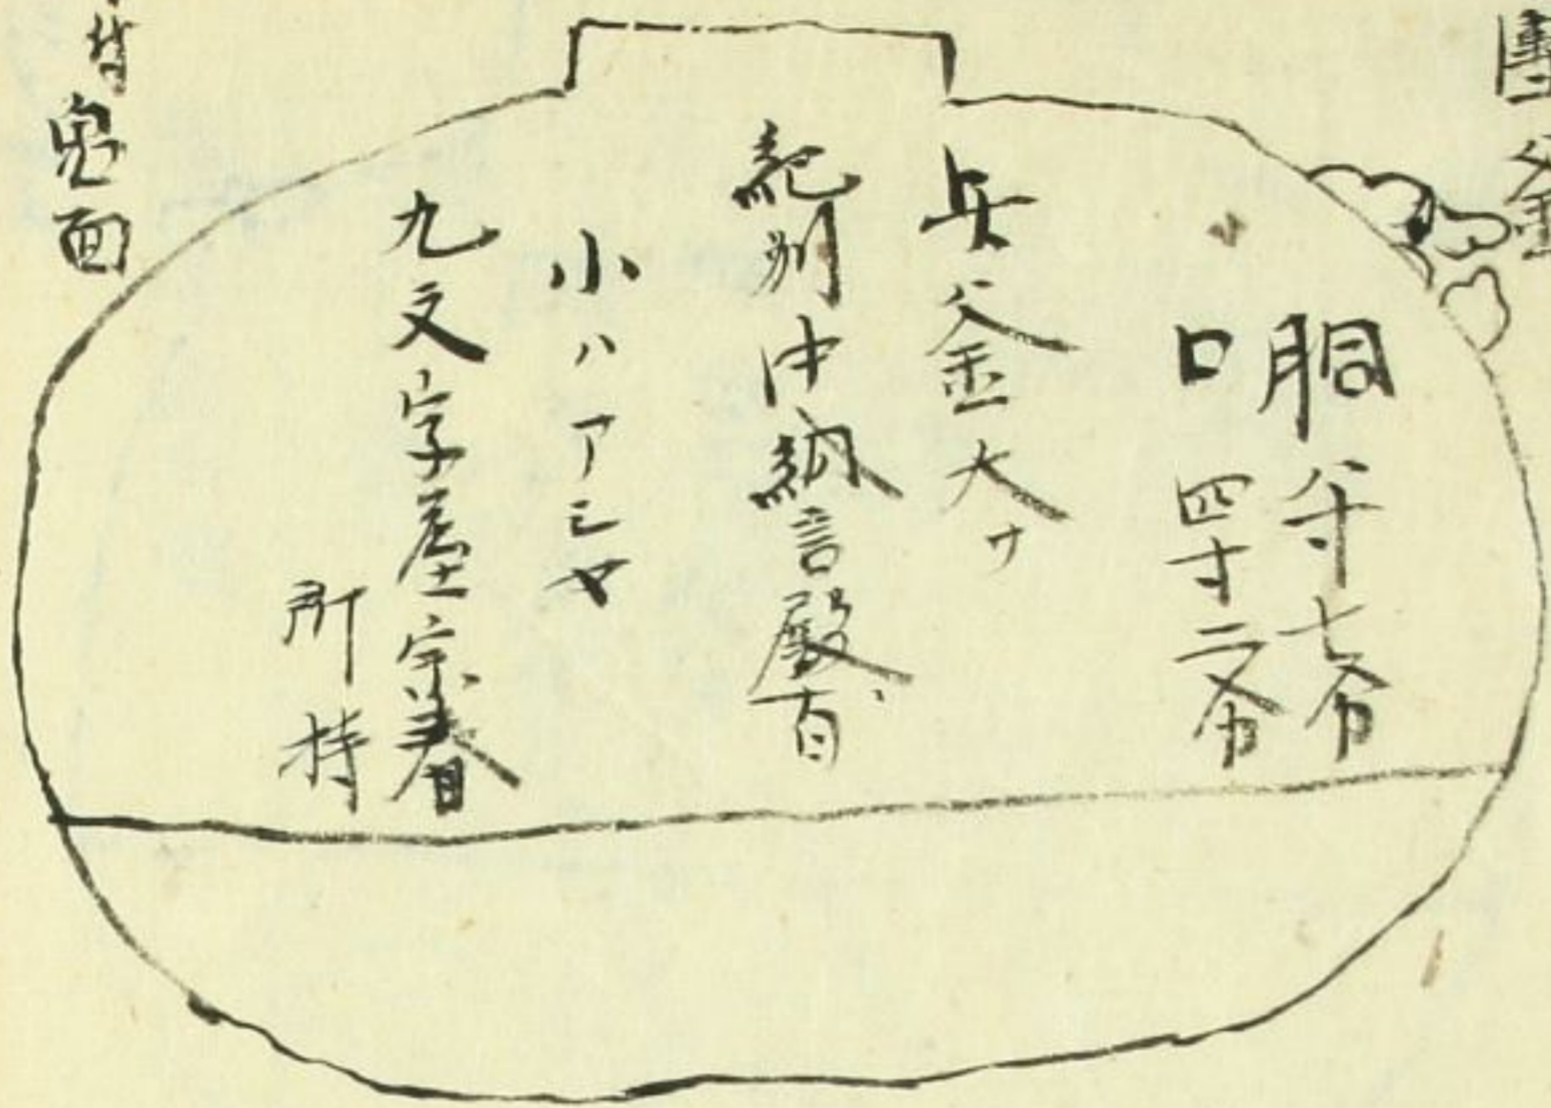 團釜
胴 八寸七分
口 四寸二分
釜大サ
紀州中納言殿
小ハアシヤ
九文字屋宗春
所持
鬼面